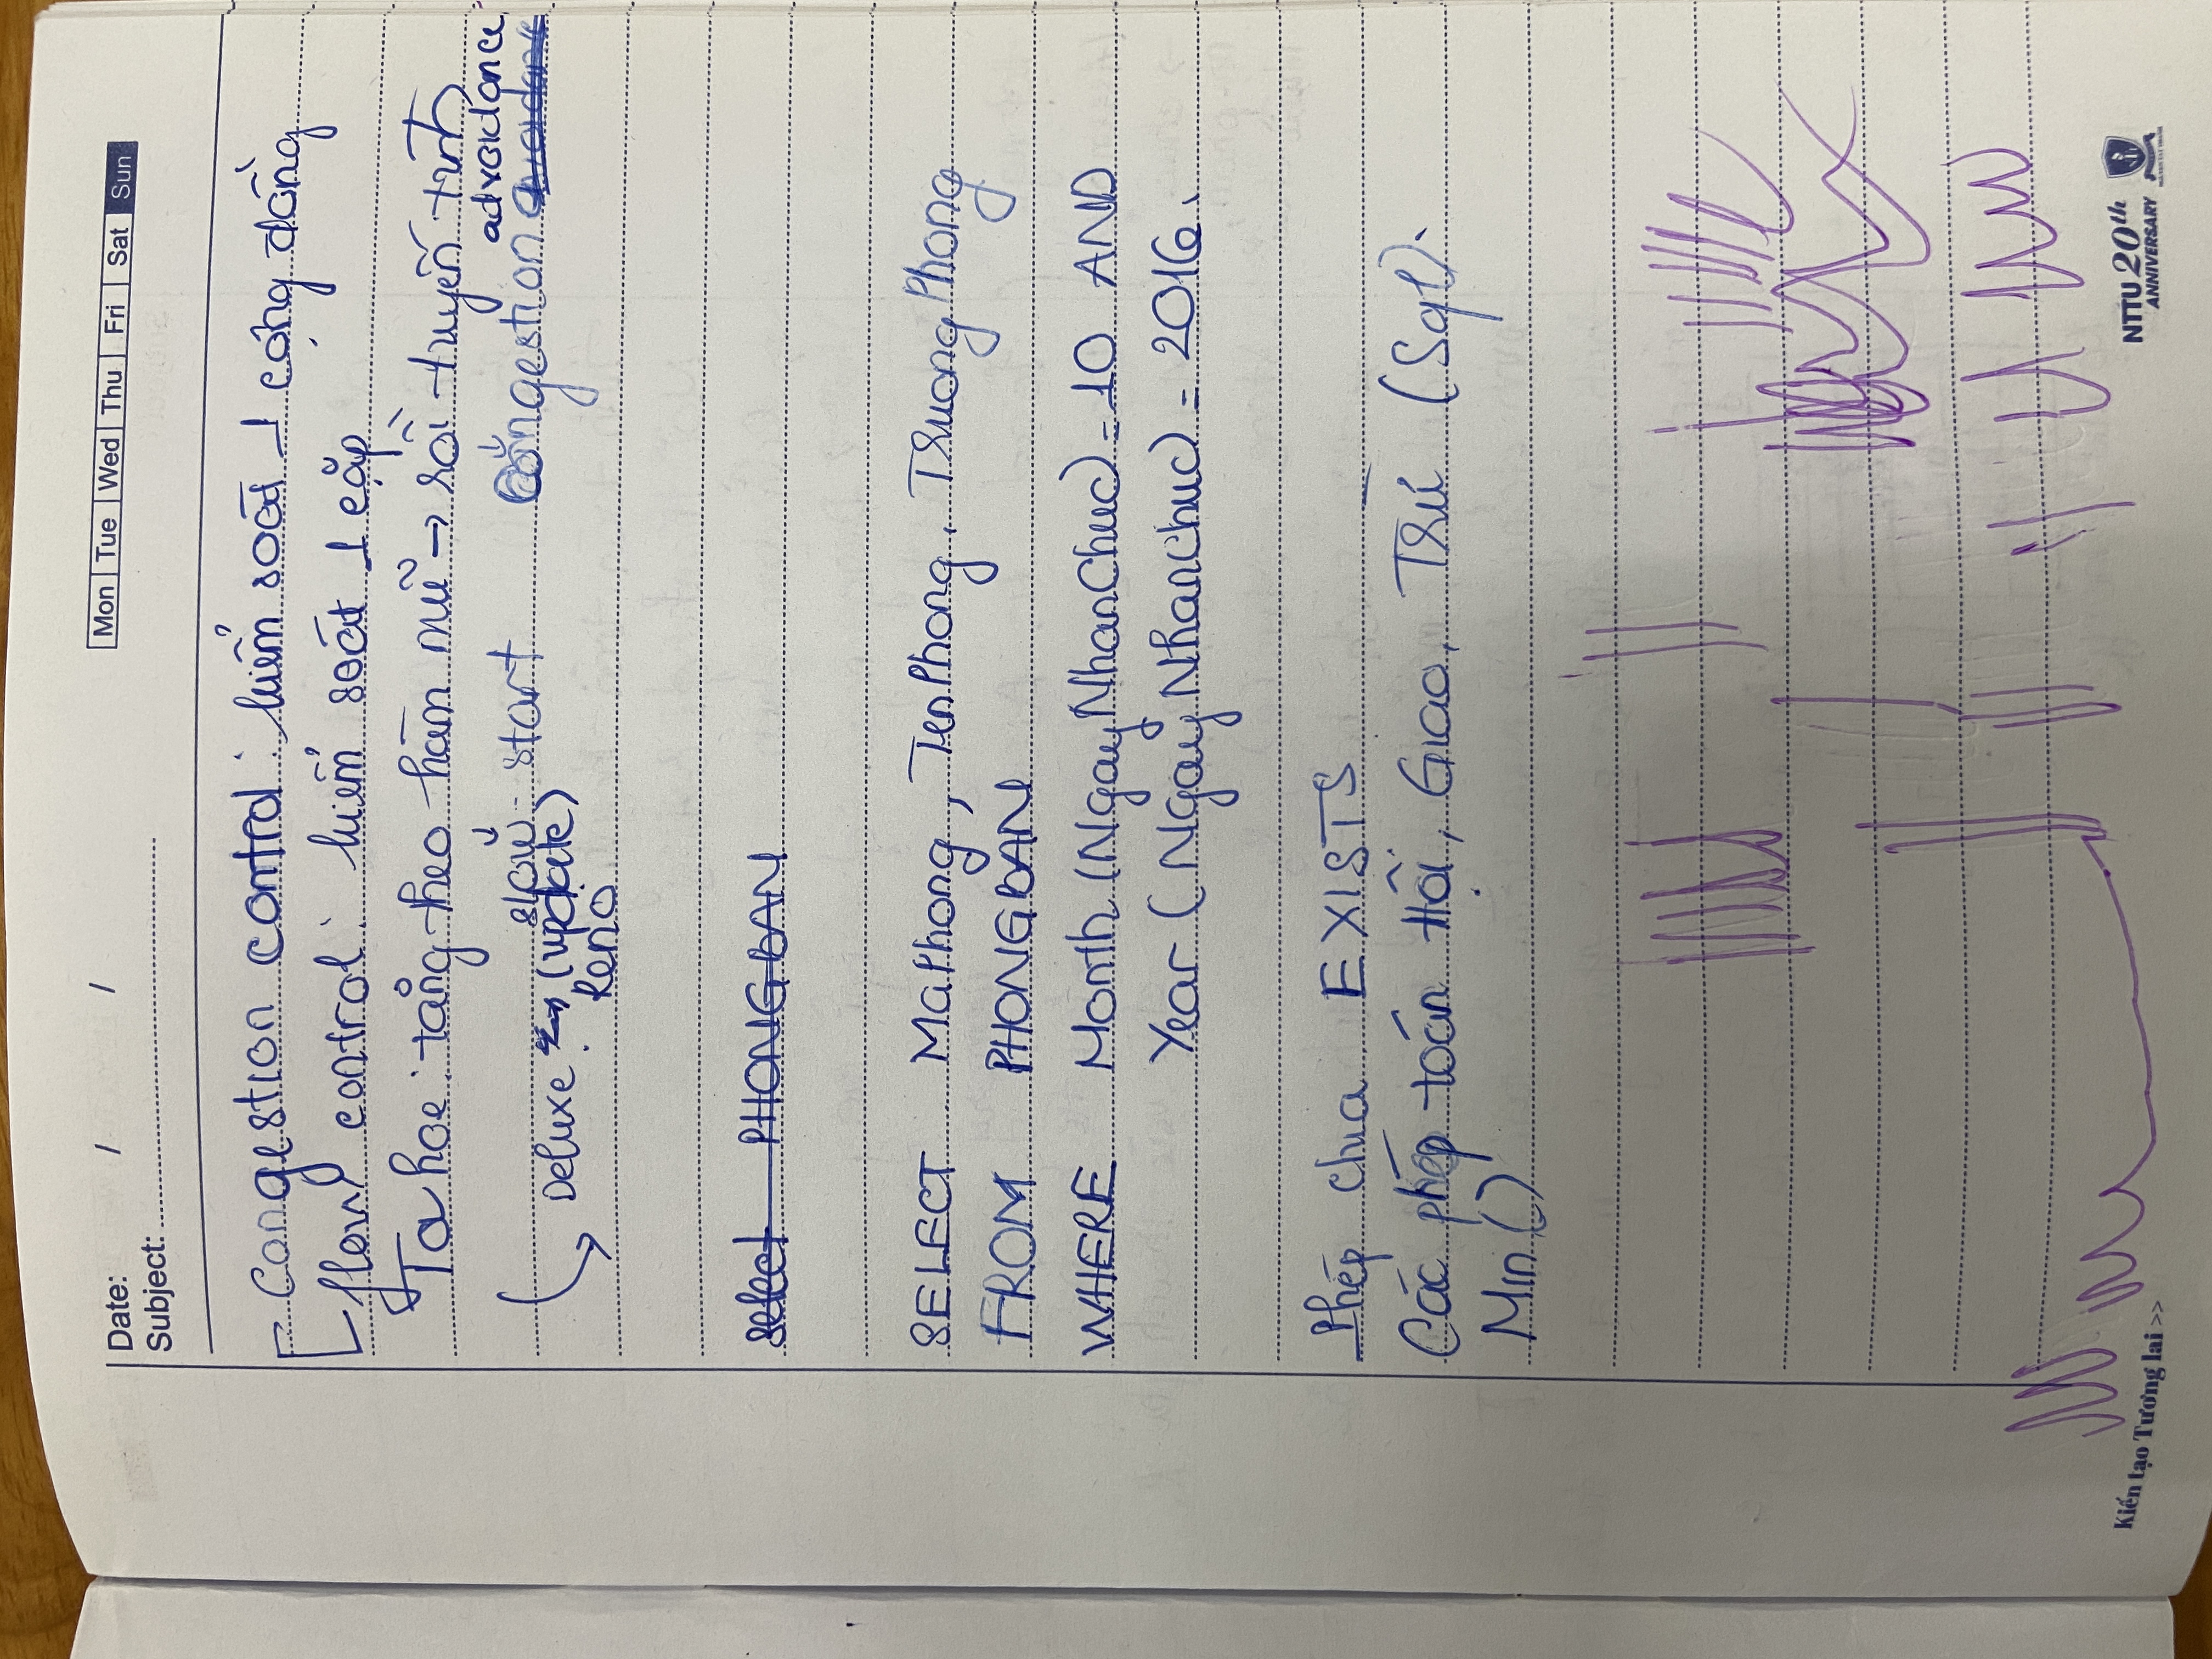 Date: / /
Mon Tue Wed Thu Fri Sat Sun
Subject:
Congestion control: kiểm soát 1 cộng đồng
flow control: kiểm soát 1 cặp
Tahoe: tăng theo hàm mũ → rồi tuyến tính
slow start
advoidance
Congestion
Deluxe (update)
Reno
Select PHONGBAN
SELECT MaPhong, TenPhong, TruongPhong
FROM PHONGBAN
WHERE Month (NgayNhanChuc) = 10 AND
Year (NgayNhanChuc) = 2016.
Phép chia EXISTS
Các phép toán Hội, Giao, Trừ (Sql).
Min()
Kiến tạo Tương lai >>
NTTU 20th
ANNIVERSARY